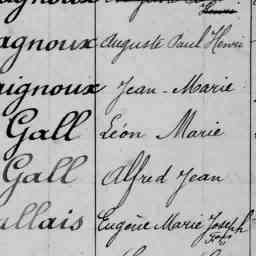 agnoux Auguste Paul Henri
aignoux Jean-Marie
Gall Léon Marie
Gall Alfred Jean
allais Eugène Marie Joseph